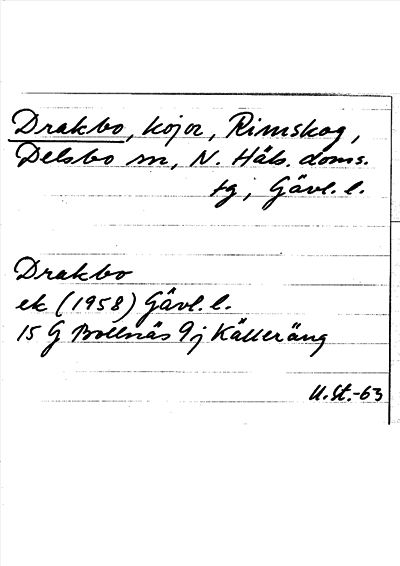 Drakbo, kojor, Rimskog,
Delsbo sn, N. Häls. doms.
tg, Gävl. l.
Drakbo
ek (1958) Gävl. l.
15 G Bollnäs 9j Källeräng
U.St.-63